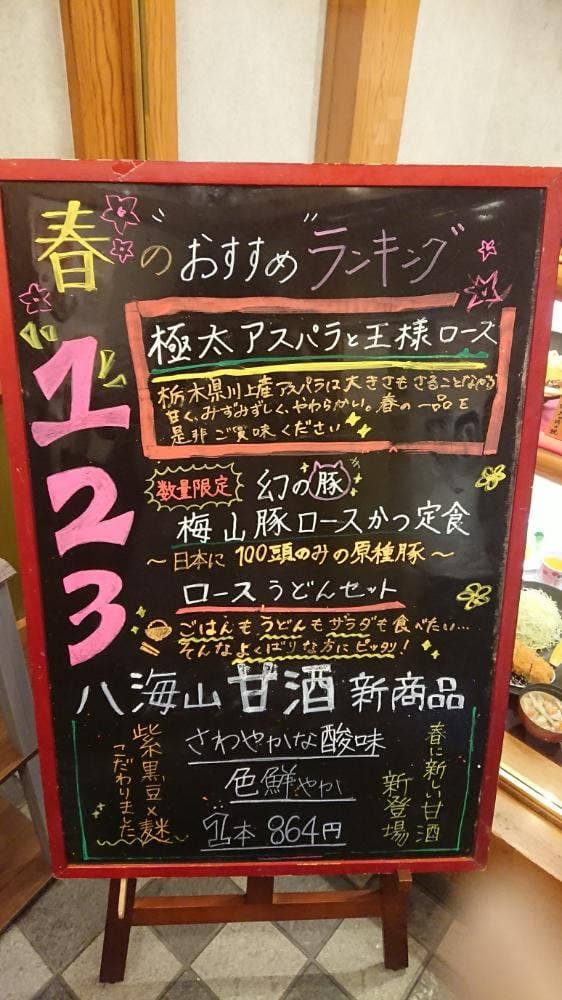 春"のおすすめ"ランキング
1
極太アスパラと王様ロース
栃木県川上産アスパラは大きさもさることながら
甘く、みずみずしく、やわらかい。春の一品を
是非ご賞味ください
2
数量限定 幻の豚
梅山豚ロースかつ定食
~日本に100頭のみの原種豚~
3
ロースうどんセット
ごはんもうどんもサラダも食べたい…
そんなよくばりな方にピッタリ!
八海山甘酒新商品
さわやかな酸味
色鮮やか
1本 864円
春に新しい甘酒
新登場
紫黒豆×麹
こだわりました